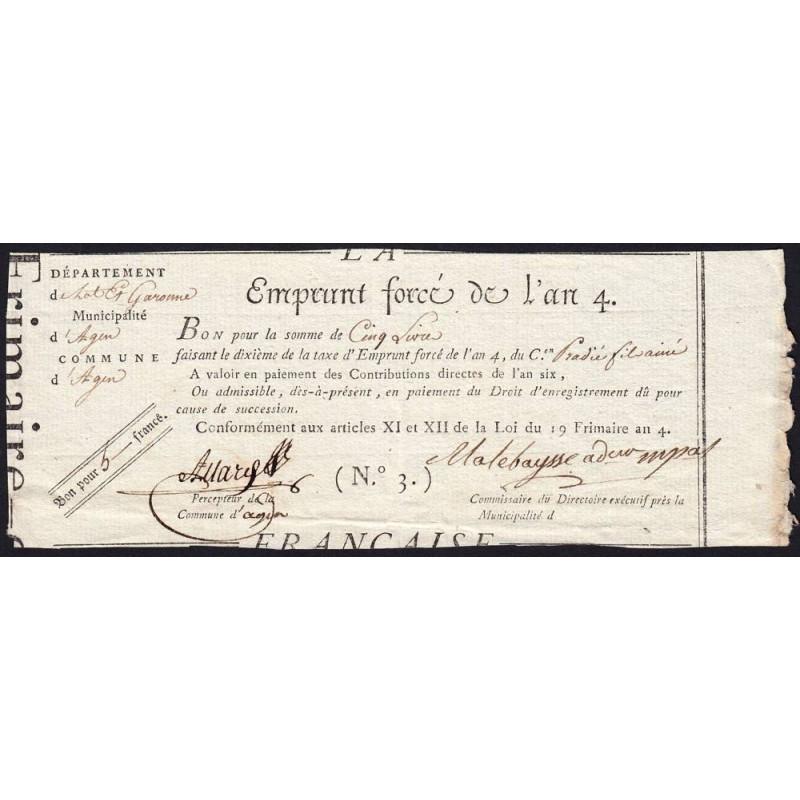 LA
DÉPARTEMENT
d Lot Et Garonne
Municipalité
d'Agen
COMMUNE
d'Agen
Bon pour 5 francs.
Emprunt forcé de l'an 4.
BON pour la somme de Cinq Livre
faisant le dixième de la taxe d'Emprunt forcé de l'an 4, du C.en Pradié fil ainé
A valoir en paiement des Contributions directes de l'an six,
Ou admissible, dès-à-présent, en paiement du Droit d'enregistrement dû pour
cause de succession.
Conformément aux articles XI et XII de la Loi du 19 Frimaire an 4.
(N.º 3.)
Percepteur de la
Commune d'agen
Malebaysse
Commissaire du Directoire exécutif près la
Municipalité d
FRANÇAISE